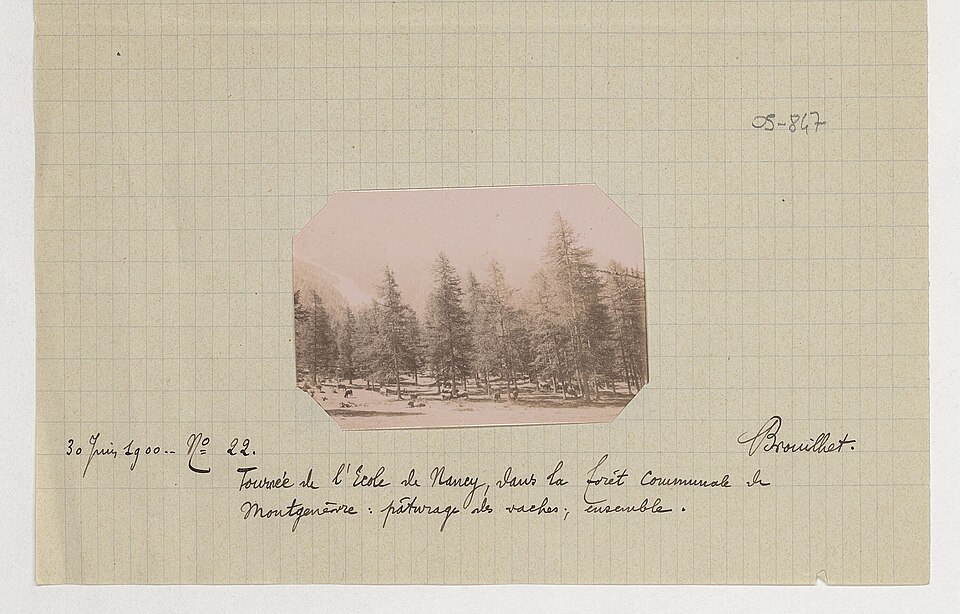 OS-847
30 Juin 1900.- Nº 22.
Brouilhet.
Tournée de l'Ecole de Nancy, dans la forêt communale de
Montgenèvre : pâturage des vaches ; ensemble.